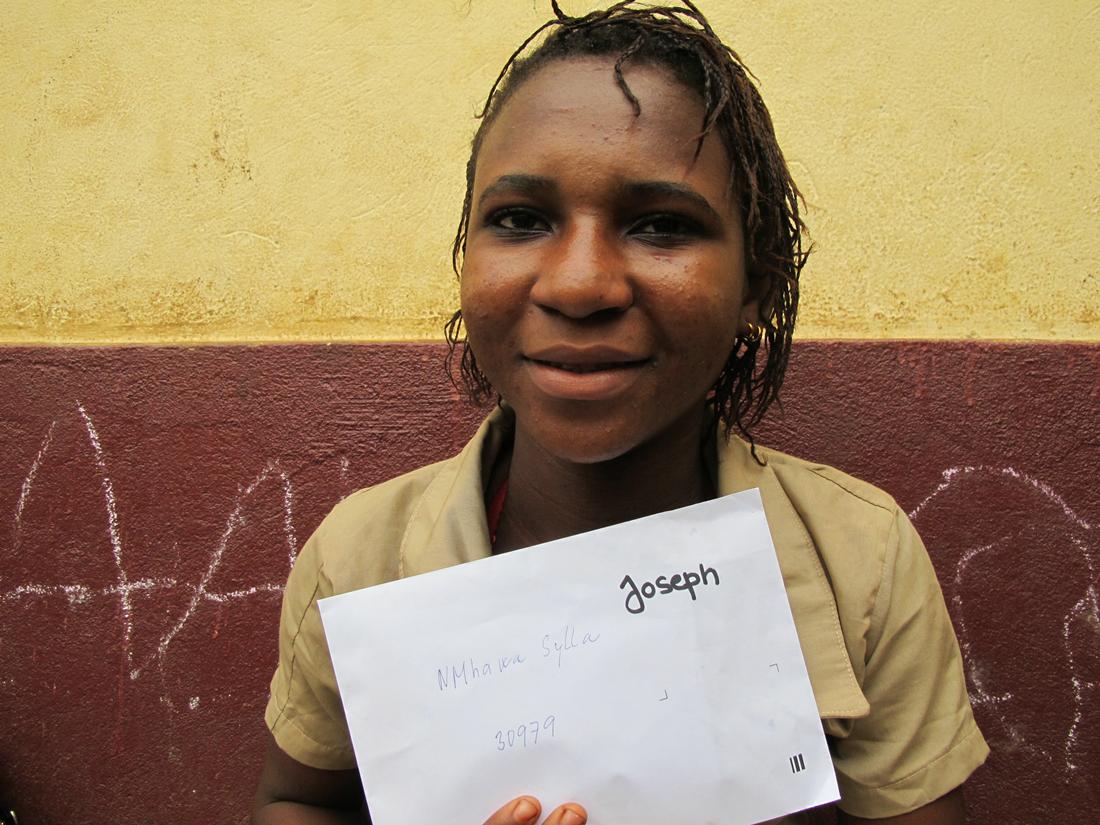 Joseph
NMhawa Sylla
30979